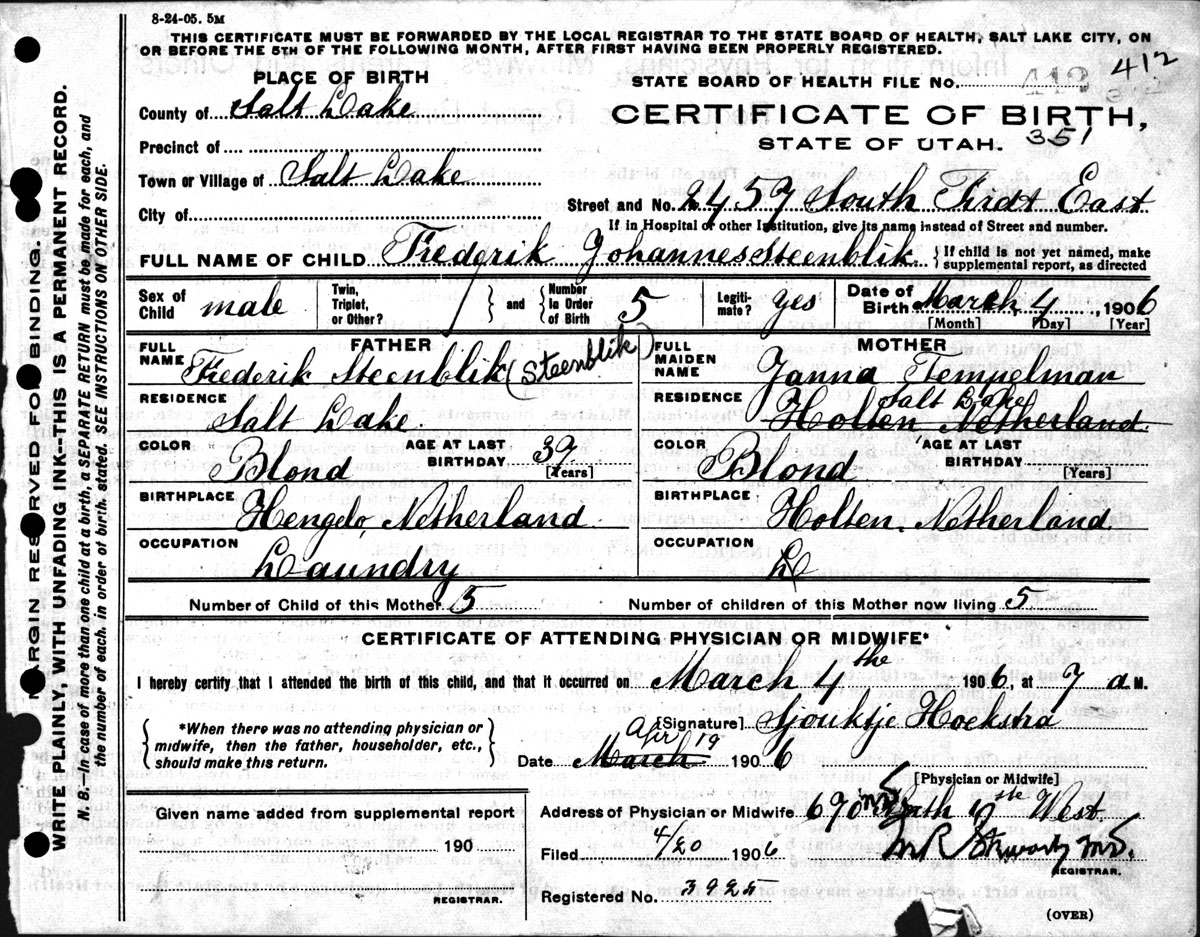 8-24-05. 5M
THIS CERTIFICATE MUST BE FORWARDED BY THE LOCAL REGISTRAR TO THE STATE BOARD OF HEALTH, SALT LAKE CITY, ON
OR BEFORE THE 5TH OF THE FOLLOWING MONTH, AFTER FIRST HAVING BEEN PROPERLY REGISTERED.
MARGIN RESERVED FOR BINDING.
WRITE PLAINLY, WITH UNFADING INK--THIS IS A PERMANENT RECORD.
N. B.--In case of more than one child at a birth, a SEPARATE RETURN must be made for each, and
the number of each, in order of birth, stated. SEE INSTRUCTIONS ON OTHER SIDE.
PLACE OF BIRTH
County of Salt Lake
Precinct of
Town or Village of Salt Lake
City of
STATE BOARD OF HEALTH FILE NO. 412
CERTIFICATE OF BIRTH,
STATE OF UTAH. 351
Street and No. 2457 South East
If in Hospital or other Institution, give its name instead of Street and number.
FULL NAME OF CHILD Frederik Johannes Steenblik { If child is not yet named, make
supplemental report, as directed
Sex of Child male Twin, Triplet, or Other? / and Number in Order of Birth 5 Legiti-mate? yes Date of Birth March 4, 1906
[Month] [Day] [Year]
FATHER
FULL NAME Frederik Steenblik (Steenblik)
RESIDENCE Salt Lake
COLOR Blond AGE AT LAST BIRTHDAY 39 [Years]
BIRTHPLACE Hengelo, Netherland
OCCUPATION Laundry
MOTHER
FULL MAIDEN NAME Janna Tempelman
RESIDENCE Salt Lake
Holten Netherland
COLOR Blond AGE AT LAST BIRTHDAY [Years]
BIRTHPLACE Holten, Netherland
OCCUPATION
Number of Child of this Mother 5 Number of children of this Mother now living 5
CERTIFICATE OF ATTENDING PHYSICIAN OR MIDWIFE*
I hereby certify that I attended the birth of this child, and that it occurred on March 4 the 1906, at 7 a M.
{ *When there was no attending physician or
midwife, then the father, householder, etc.,
should make this return. }
[Signature] Sjoukje Hoekstra
Date March Apr 19 1906
[Physician or Midwife]
Given name added from supplemental report
190
REGISTRAR.
Address of Physician or Midwife 690 West
Filed 4/20 1906
REGISTRAR.
Registered No. 3925
(OVER)